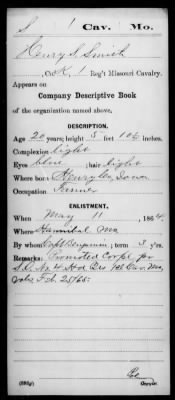 S | 1 | Cav. | Mo.
Henry S. Smith
, Co. K, 1 Reg't Missouri Cavalry.
Appears on
Company Descriptive Book
of the organization named above.
DESCRIPTION.
Age 20 years; height 5 feet 10½ inches.
Complexion light
Eyes blue ; hair light
Where born Henry Co, Iowa
Occupation Farmer
ENLISTMENT.
When May 11 , 1864.
Where Hannibal Mo
By whom Capt Benjamin ; term 3 y'rs.
Remarks: Promoted Corpl, per
S.O. No 4 Hd Qrs 1st Cav. Mo,
Vols Feb. 25/65.
Copyist.